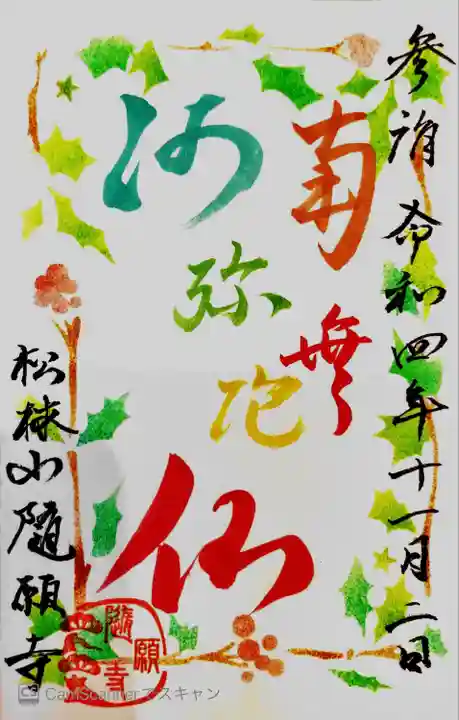 参詣 令和四年十一月二日
南無
阿弥陀
仏
松林山隨願寺
隨願寺
CS CamScannerでスキャン